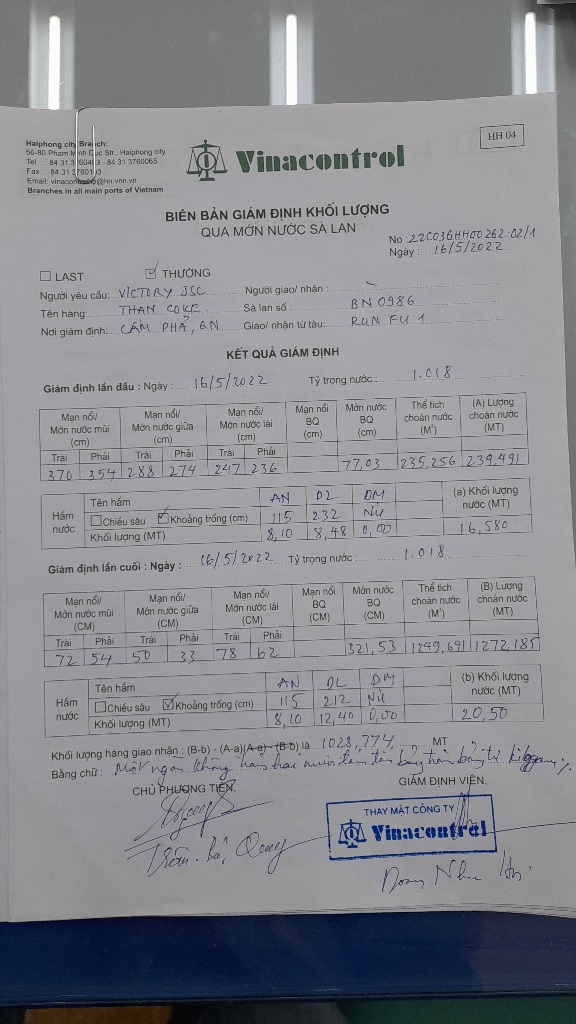 Haiphong city Branch:
56-80 Pham Minh Duc Str., Haiphong city
Tel : 84 31 3760493 - 84 31 3760065
Fax : 84 31 3760103
Branches in all main ports of Vietnam
Vinacontrol
HH 04
BIÊN BẢN GIÁM ĐỊNH KHỐI LƯỢNG
QUA MỚN NƯỚC SÀ LAN
No : 22C03GHH00262-02/1
Ngày : 16/5/2022
LAST THƯỜNG
Người yêu cầu: VICTORY JSC Người giao/ nhận :
Tên hàng: THAN COKE Sà lan số : BN 0986
Nơi giám định: CẨM PHẢ, QN Giao/ nhận từ tàu: RUN FU 1
KẾT QUẢ GIÁM ĐỊNH
Giám định lần đầu : Ngày : 16/5/2022 Tỷ trọng nước : 1.018
Mạn nổi/ Mớn nước mũi (cm) Mạn nổi/ Mớn nước giữa (cm) Mạn nổi/ Mớn nước lái (cm) Mạn nổi BQ (cm) Mớn nước BQ (cm) Thể tích choán nước (M³) (A) Lượng choán nước (MT)
Trái Phải Trái Phải Trái Phải
370 354 288 274 247 236 77,03 235,256 239,491
Hầm nước Tên hầm AN DL DM (a) Khối lượng nước (MT)
Chiều sâu Khoảng trống (cm) 115 232 Nil
Khối lượng (MT) 8,10 8,48 0,00 16,580
Giám định lần cuối : Ngày : 16/5/2022 Tỷ trọng nước : 1.018
Mạn nổi/ Mớn nước mũi (CM) Mạn nổi/ Mớn nước giữa (CM) Mạn nổi/ Mớn nước lái (CM) Mạn nổi BQ (CM) Mớn nước BQ (CM) Thể tích choán nước (M³) (B) Lượng choán nước (MT)
Trái Phải Trái Phải Trái Phải
72 54 50 33 78 62 321,53 1249,691 1272,185
Hầm nước Tên hầm AN DL DM (b) Khối lượng nước (MT)
Chiều sâu Khoảng trống (cm) 115 212 Nil
Khối lượng (MT) 8,10 12,40 0,00 20,50
Khối lượng hàng giao nhận : (B-b) - (A-a)(A-a) - (B-b) là 1028,774 MT
Bằng chữ : Một ngàn không trăm hai mươi tám tấn bảy trăm bảy tư kilôgam
CHỦ PHƯƠNG TIỆN, GIÁM ĐỊNH VIÊN,
THAY MẶT CÔNG TY
Vinacontrol
Trần Bá Quang